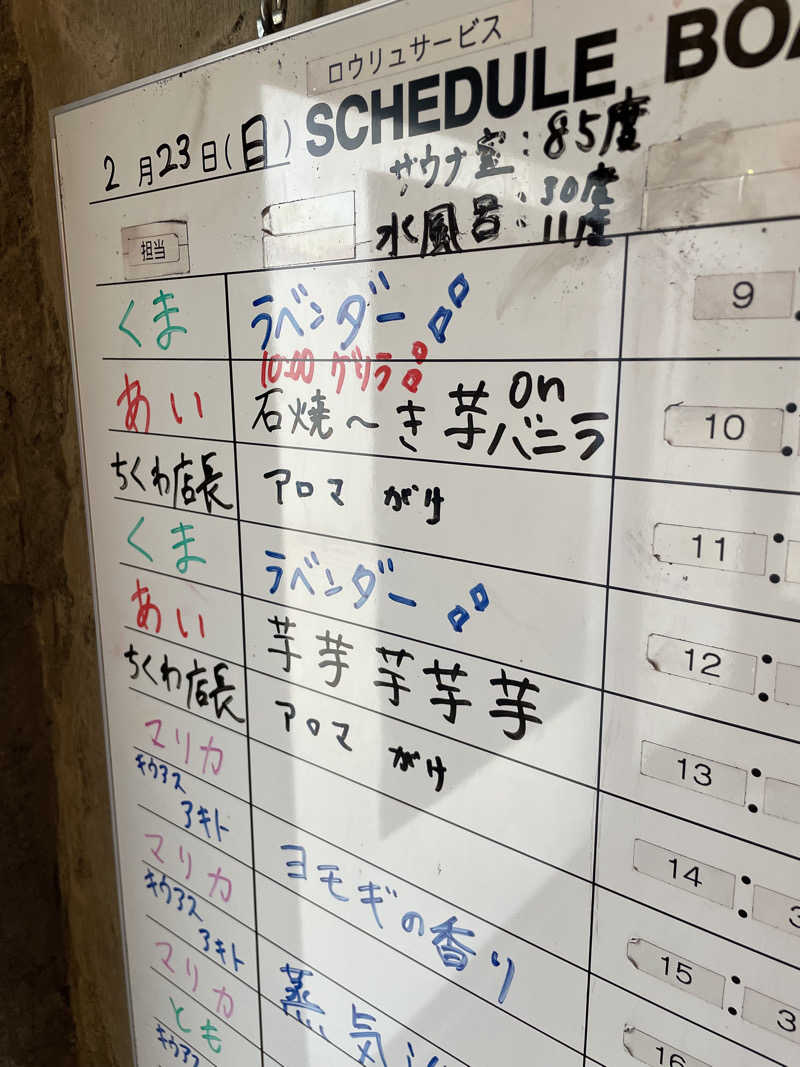 ロウリュサービス
SCHEDULE BOA
2月23日(日)
サウナ室:85度
水風呂:30度
11度
担当
くま ラベンダー 9
10:00 ゲリラ
あい 石焼〜き芋 on バニラ 10:
ちくわ店長 アロマ がけ 11:
くま ラベンダー 12:
あい 芋芋芋芋芋 13:
ちくわ店長 アロマ がけ 14: 3
マリカ 15: 3
キウアス
アキト ヨモギの香り 16
マリカ
キウアス
アキト 蒸気
マリカ
とも
キウアス